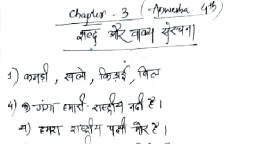 Chapter - 3 (Anwesha 4th)
शब्द और वाक्य संरचना
1) ककड़ी, खम्भे, किड़ाई, बिल
4) क-गंगा हमारी राष्ट्रीय नदी है।
ख) हमारा राष्ट्रीय पक्षी मोर है।